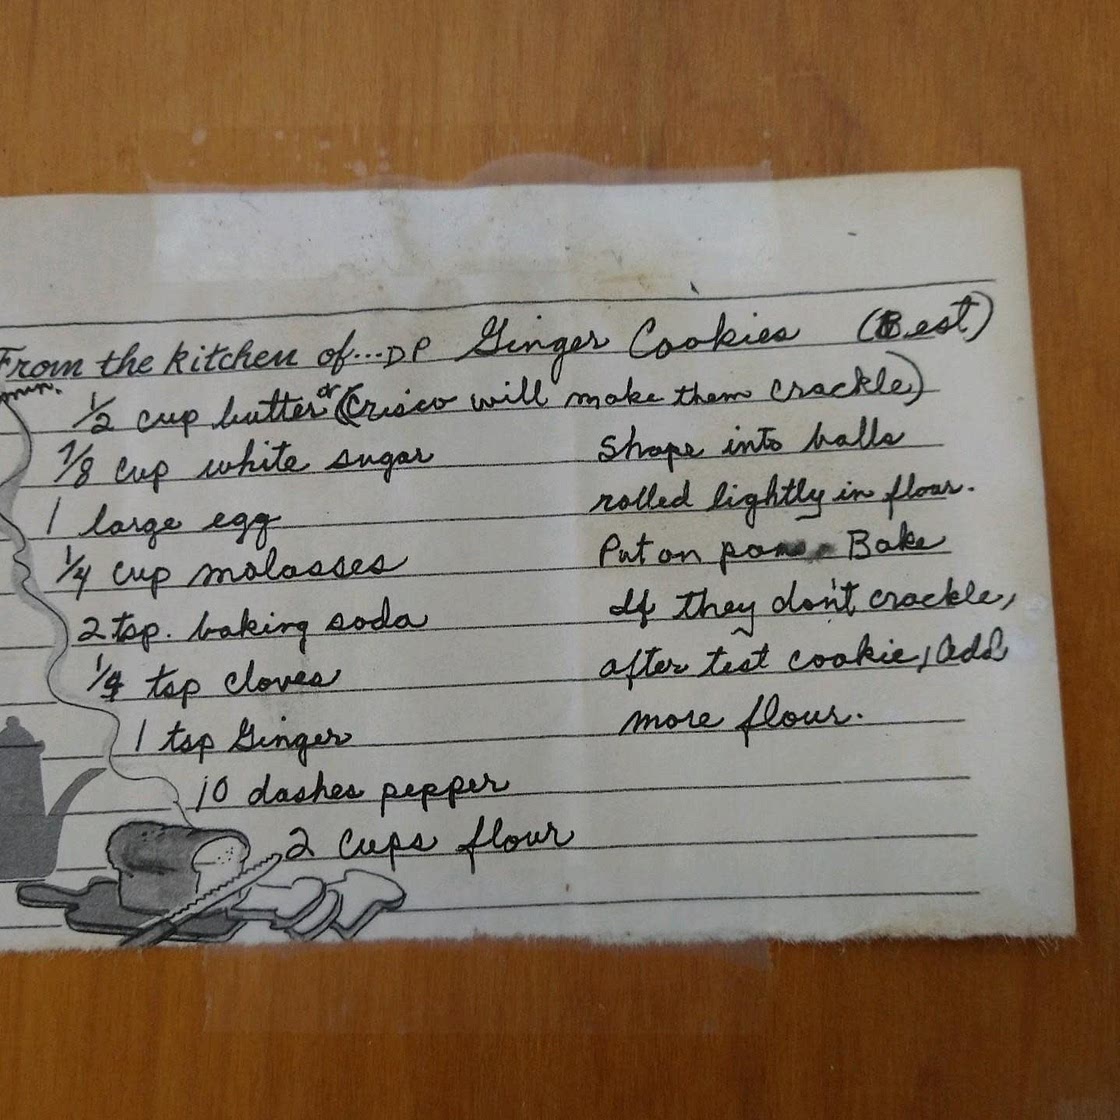 From the kitchen of... DP Ginger Cookies (Best)
min.
1/2 cup butter or (Crisco will make them crackle)
7/8 cup white sugar
1 large egg
1/4 cup molasses
2 tsp. baking soda
1/4 tsp cloves
1 tsp Ginger
10 dashes pepper
2 cups flour
Shape into balls
rolled lightly in flour.
Put on pans. Bake
If they don't crackle,
after test cookie, add
more flour.